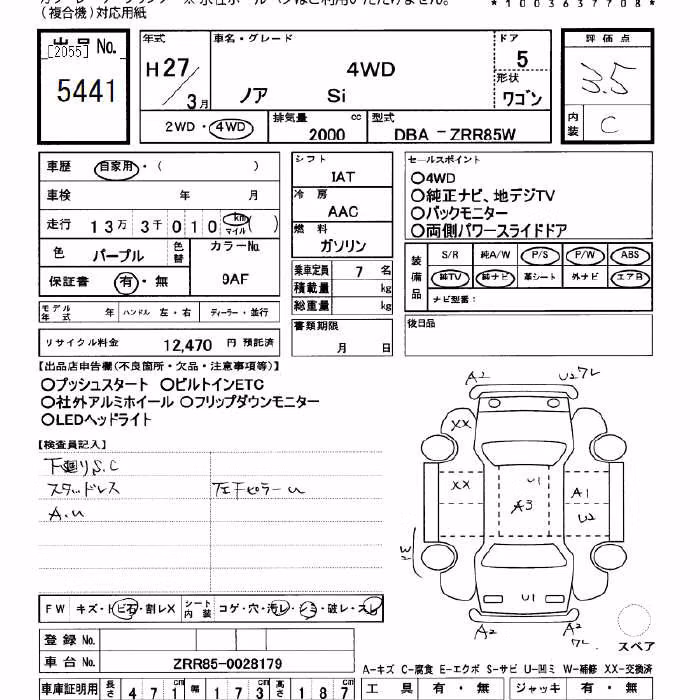 (複合機)対応用紙
*1003637708*
出品 No.
[2055]
5441
年式
H27/3月
車名・グレード
4WD
ノア Si
ドア
5
形状
ワゴン
評価点
3.5
内装
C
2WD・4WD
排気量
2000 cc
型式
DBA-ZRR85W
車歴 自家用・( )
車検 年 月
走行 13万3千010 km マイル ( )
色 パープル 色替
カラーNo.
9AF
保証書 有・無
モデル年式 年 ハンドル 左・右 ディーラー・並行
リサイクル料金 12,470 円預託済
シフト
IAT
冷房
AAC
燃料
ガソリン
乗車定員 7 名
積載量 kg
総重量 kg
書類期限
月 日
セールスポイント
○4WD
○純正ナビ、地デジTV
○バックモニター
○両側パワースライドドア
装備品
S/R 純A/W P/S P/W ABS
純TV 純ナビ 革シート 外ナビ エアB
ナビ型番:
後日品
【出品店申告欄(不良箇所・欠品・注意事項等)】
○プッシュスタート ○ビルトインETC
○社外アルミホイール ○フリップダウンモニター
○LEDヘッドライト
【検査員記入】
下廻りS.C
スタッドレス 左干ピラーU
A.U
A2 U2 ワレ
XX
XX U1 A1
A3 U2
W
U1
A2 A2 ワレ
スペア
FW キズ・トビ石・割レX シート内装 コゲ・穴・汚レ・シミ・破レ・スレ
登録No.
車台No. ZRR85-0028179
A-キズ C-腐食 E-エクボ S-サビ U-凹ミ W-補修 XX-交換済
車庫証明用 長さ 471cm 幅 173cm 高さ 187cm
工具 有・無 ジャッキ 有・無